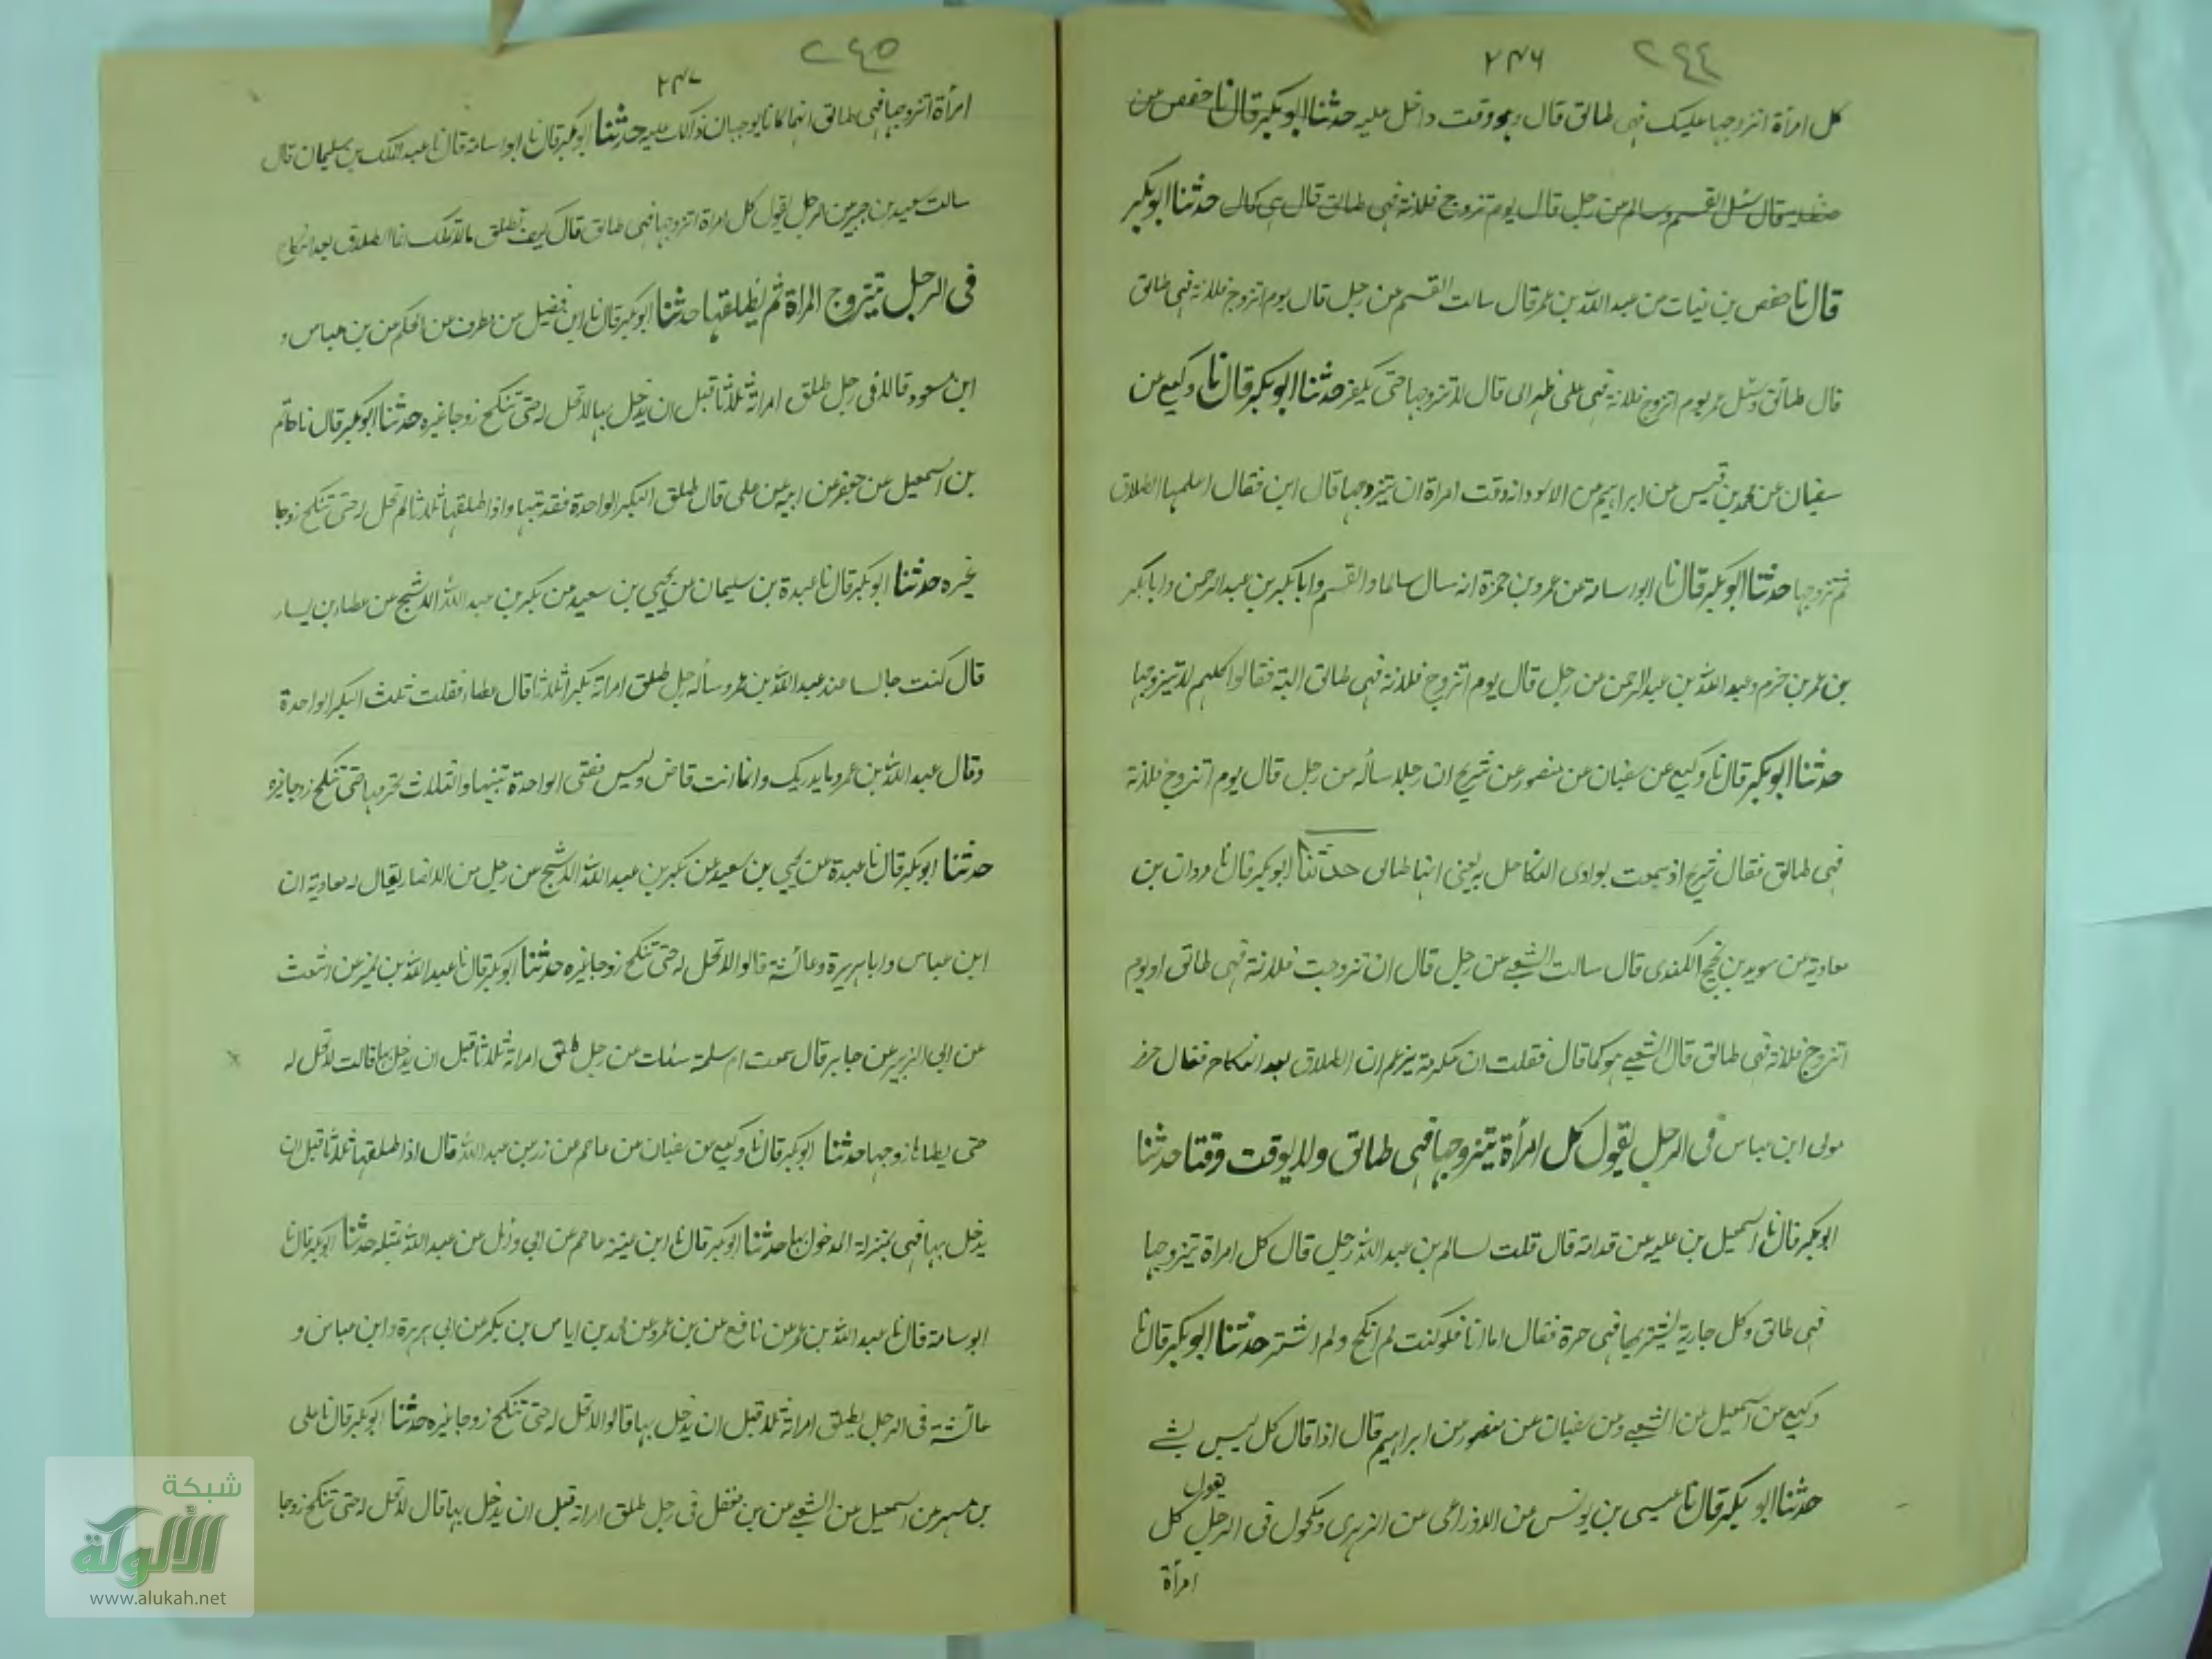 ٢٤٦ ٢٤٤
كل امرأة اتزوجها عليك فهي طالق قال وبووقت داخل عليه حدثنا ابو بكر قال نا حفص عن
حنظلة قال سئل القسم وسالم عن رجل قال يوم تزوج فلانة فهي طالق قال هي كمال حدثنا ابو بكر
قال نا حفص بن غياث عن عبد الله بن عمر قال سالت القسم عن رجل قال يوم اتزوج فلانة فهي طالق
قال طالق وسئل عمر يوم اتزوج فلانة فهي على ظهر ابي قال لا تتزوجها حتى يكفر حدثنا ابو بكر قال نا وكيع عن
سفيان عن محمد بن قيس عن ابراهيم عن الاسود انه وقت امراة ان تيزوجها قال ابن فقال اعلمها الطلاق
ثم تزوجها حدثنا ابو بكر قال نا ابو اسامة عن عمرو بن حمزة انه سال سالما والقسم وابا بكر بن عبد الرحمن وابا بكر
بن عمر بن حزم وعبد الله بن عبد الرحمن عن رجل قال يوم اتزوج فلانة فهي طالق البتة فقالوا كلهم لا تيزوجها
حدثنا ابو بكر قال نا وكيع عن سفيان عن منصور عن شريح ان رجلا سأله عن رجل قال يوم اتزوج فلانة
فهي طالق فقال شريح اذ سمعت بوادى النكا حل به يعنى انها طالق حدثنا ابو بكر قال نا مروان بن
معاوية عن سويد بن نجيح الكندى قال سالت الشعبے عن رجل قال ان تزوجت فلانة فهي طالق او يوم
اتزوج فلانة فهي طالق قال الشعبے هو كما قال فقلت ان عكرمة يزعم ان الطلاق بعد النكاح فقال جرز
مولى ابن عباس فى الرجل يقول كل امرأة يتزوجها فهي طالق ولا يوقت وقتا حدثنا
ابو بكر قال نا اسمعيل بن عليه عن قدامة قال قلت لسالم بن عبد الله رجل قال كل امراة يتزوجها
فهي طالق وكل جارية يشتريها فهي حرة فقال اما انا فلو كنت لم انكح ولم اشتر حدثنا ابو بكر قال نا
وكيع عن اسمعيل عن الشعبے وعن سفيان عن منصور عن ابراهيم قال اذا قال كل ليس بشے
حدثنا ابو بكر قال نا عيسى بن يونس عن الاوزاعى عن الزهرى ومكحول فى الرجل يقول كل
امرأة
٢٤٧ ٢٤٥
امرأة اتزوجها فهي طالق انهما كانا يوجبان ذالك عليه حدثنا ابو بكر قال نا ابو اسامة قال نا عبد الملك بن سليمان قال
سالت سعيد بن جبير عن الرجل يقول كل امراة اتزوجها فهي طالق قال كيف تطلق مالا تملك انما الطلاق بعد النكاح
فى الرجل يتزوج المراة ثم يطلقها حدثنا ابو بكر قال نا ابن فضيل عن مطرف عن الحكم عن بن عباس و
ابن مسعود قالا فى رجل طلق امراته ثلاثا قبل ان يدخل بها لا تحل له حتى تنكح زوجا غيره حدثنا ابو بكر قال نا حاتم
بن اسمعيل عن جعفر عن ابيه عن على قال طلق البكر الواحدة فقد تبتها واذا طلقها ثلاثا لم تحل له حتى تنكح زوجا
غيره حدثنا ابو بكر قال نا عبدة بن سليمان عن يحيى بن سعيد عن بكير بن عبد الله الاشج عن عطاء بن يسار
قال كنت جالسا عند عبد الله بن عمرو سأله رجل طلق امراته بكرا ثلاثا قال عطاء فقلت ثلث البكر الواحدة
وقال عبد الله بن عمرو ما يدريك وانما انت قاض وليس بمفتى الواحدة تبينها والثلاث تحرمها حتى تنكح زوجا غيره
حدثنا ابو بكر قال نا عبدة عن يحيى بن سعيد عن بكير بن عبد الله الاشج عن رجل من الانصار يقال له معاوية ان
ابن عباس وابا هريرة وعائشة قالوا لا تحل له حتى تنكح زوجا غيره حدثنا ابو بكر قال نا عبد الله بن نمير عن اشعث
عن ابى الزبير عن جابر قال سمعت ام سلمة سئلت عن رجل طلق امراته ثلاثا قبل ان يدخل بها قالت لا تحل له
حتى يطاها زوجها حدثنا ابو بكر قال نا وكيع عن سفيان عن عاصم عن زر عن عبد الله قال اذا طلقها ثلاثا قبل ان
يدخل بها فهي بمنزلة المدخول بها حدثنا ابو بكر قال نا ابن عيينة عاصم عن ابى وائل عن عبد الله بمثله حدثنا ابو بكر قال نا
ابو سامة قال نا عبد الله بن عمر عن نافع عن بن عمر وعن محمد بن اياس بن بكير عن ابى هريرة وابن عباس و
عائشة فى الرجل يطلق امراته ثلاثا قبل ان يدخل بها قالوا لا تحل له حتى تنكح زوجا غيره حدثنا ابو بكر قال نا على
بن مسهر عن اسمعيل عن الشعبے عن بن مغفل فى رجل طلق امراته قبل ان يدخل بها قال لا تحل له حتى تنكح زوجا
شبكة
الألوكة
www.alukah.net